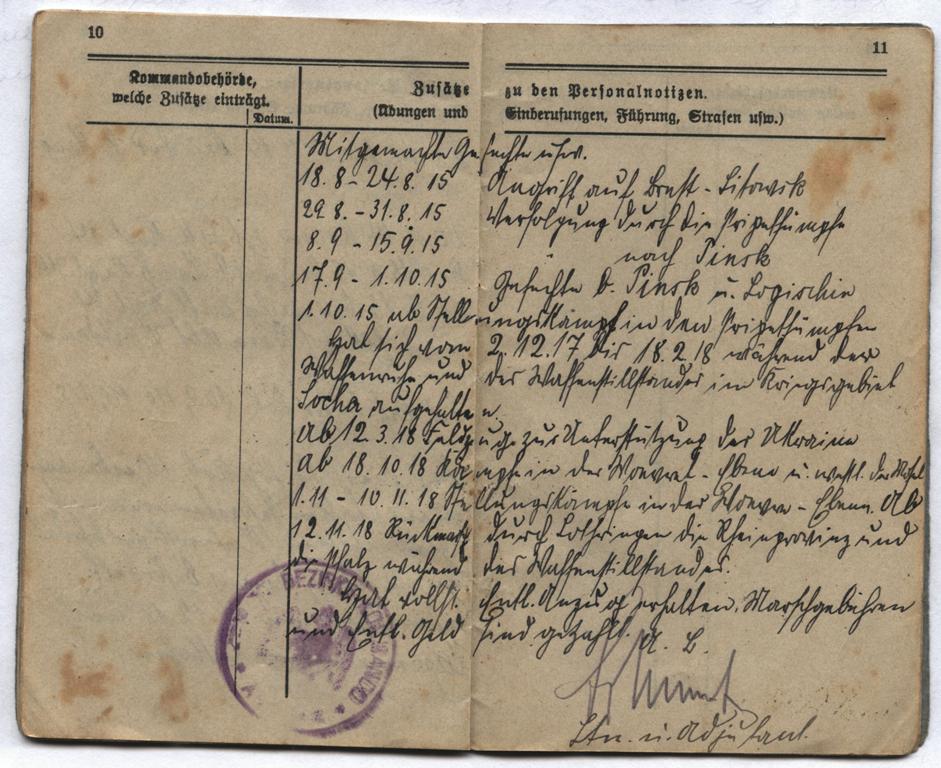 10
11
Kommandobehörde,
welche Zusätze einträgt.
Datum.
Zusätze zu den Personalnotizen.
(Übungen und Einberufungen, Führung, Strafen usw.)
Mitgemachte Gefechte usw.
18.8 - 24.8.15 Angriff auf Brest-Litowsk
29.8. - 31.8.15 Verfolgung durch die Pripetsümpfe
8.9 - 15.9.15 " nach Pinsk
17.9 - 1.10.15 Gefechte b. Pinsk u. Logischin
1.10.15 ab Stellungskämpfe in den Pripetsümpfen
Hat sich vom 2.12.17 bis 18.2.18 während der
Waffenruhe und des Waffenstillstandes im Kriegsgebiet
Socha aufgehalten.
Ab 12.3.18 Feldzug zur Unterstützung der Ukraine
Ab 18.10.18 Kämpfe in der Woevre-Ebene u. westl. der Mosel
1.11 - 10.11.18 Stellungskämpfe in der Woevre-Ebene. Ab
12.11.18 Rückmarsch durch Lothringen die Rheinprovinz und
die Pfalz während des Waffenstillstandes.
Hat vollst. Entl. Anzug erhalten. Marschgebühren
und Entl. Geld sind gezahlt. A. B.
Ltn. u. Adjutant.
BEZIRKSKOMMANDO